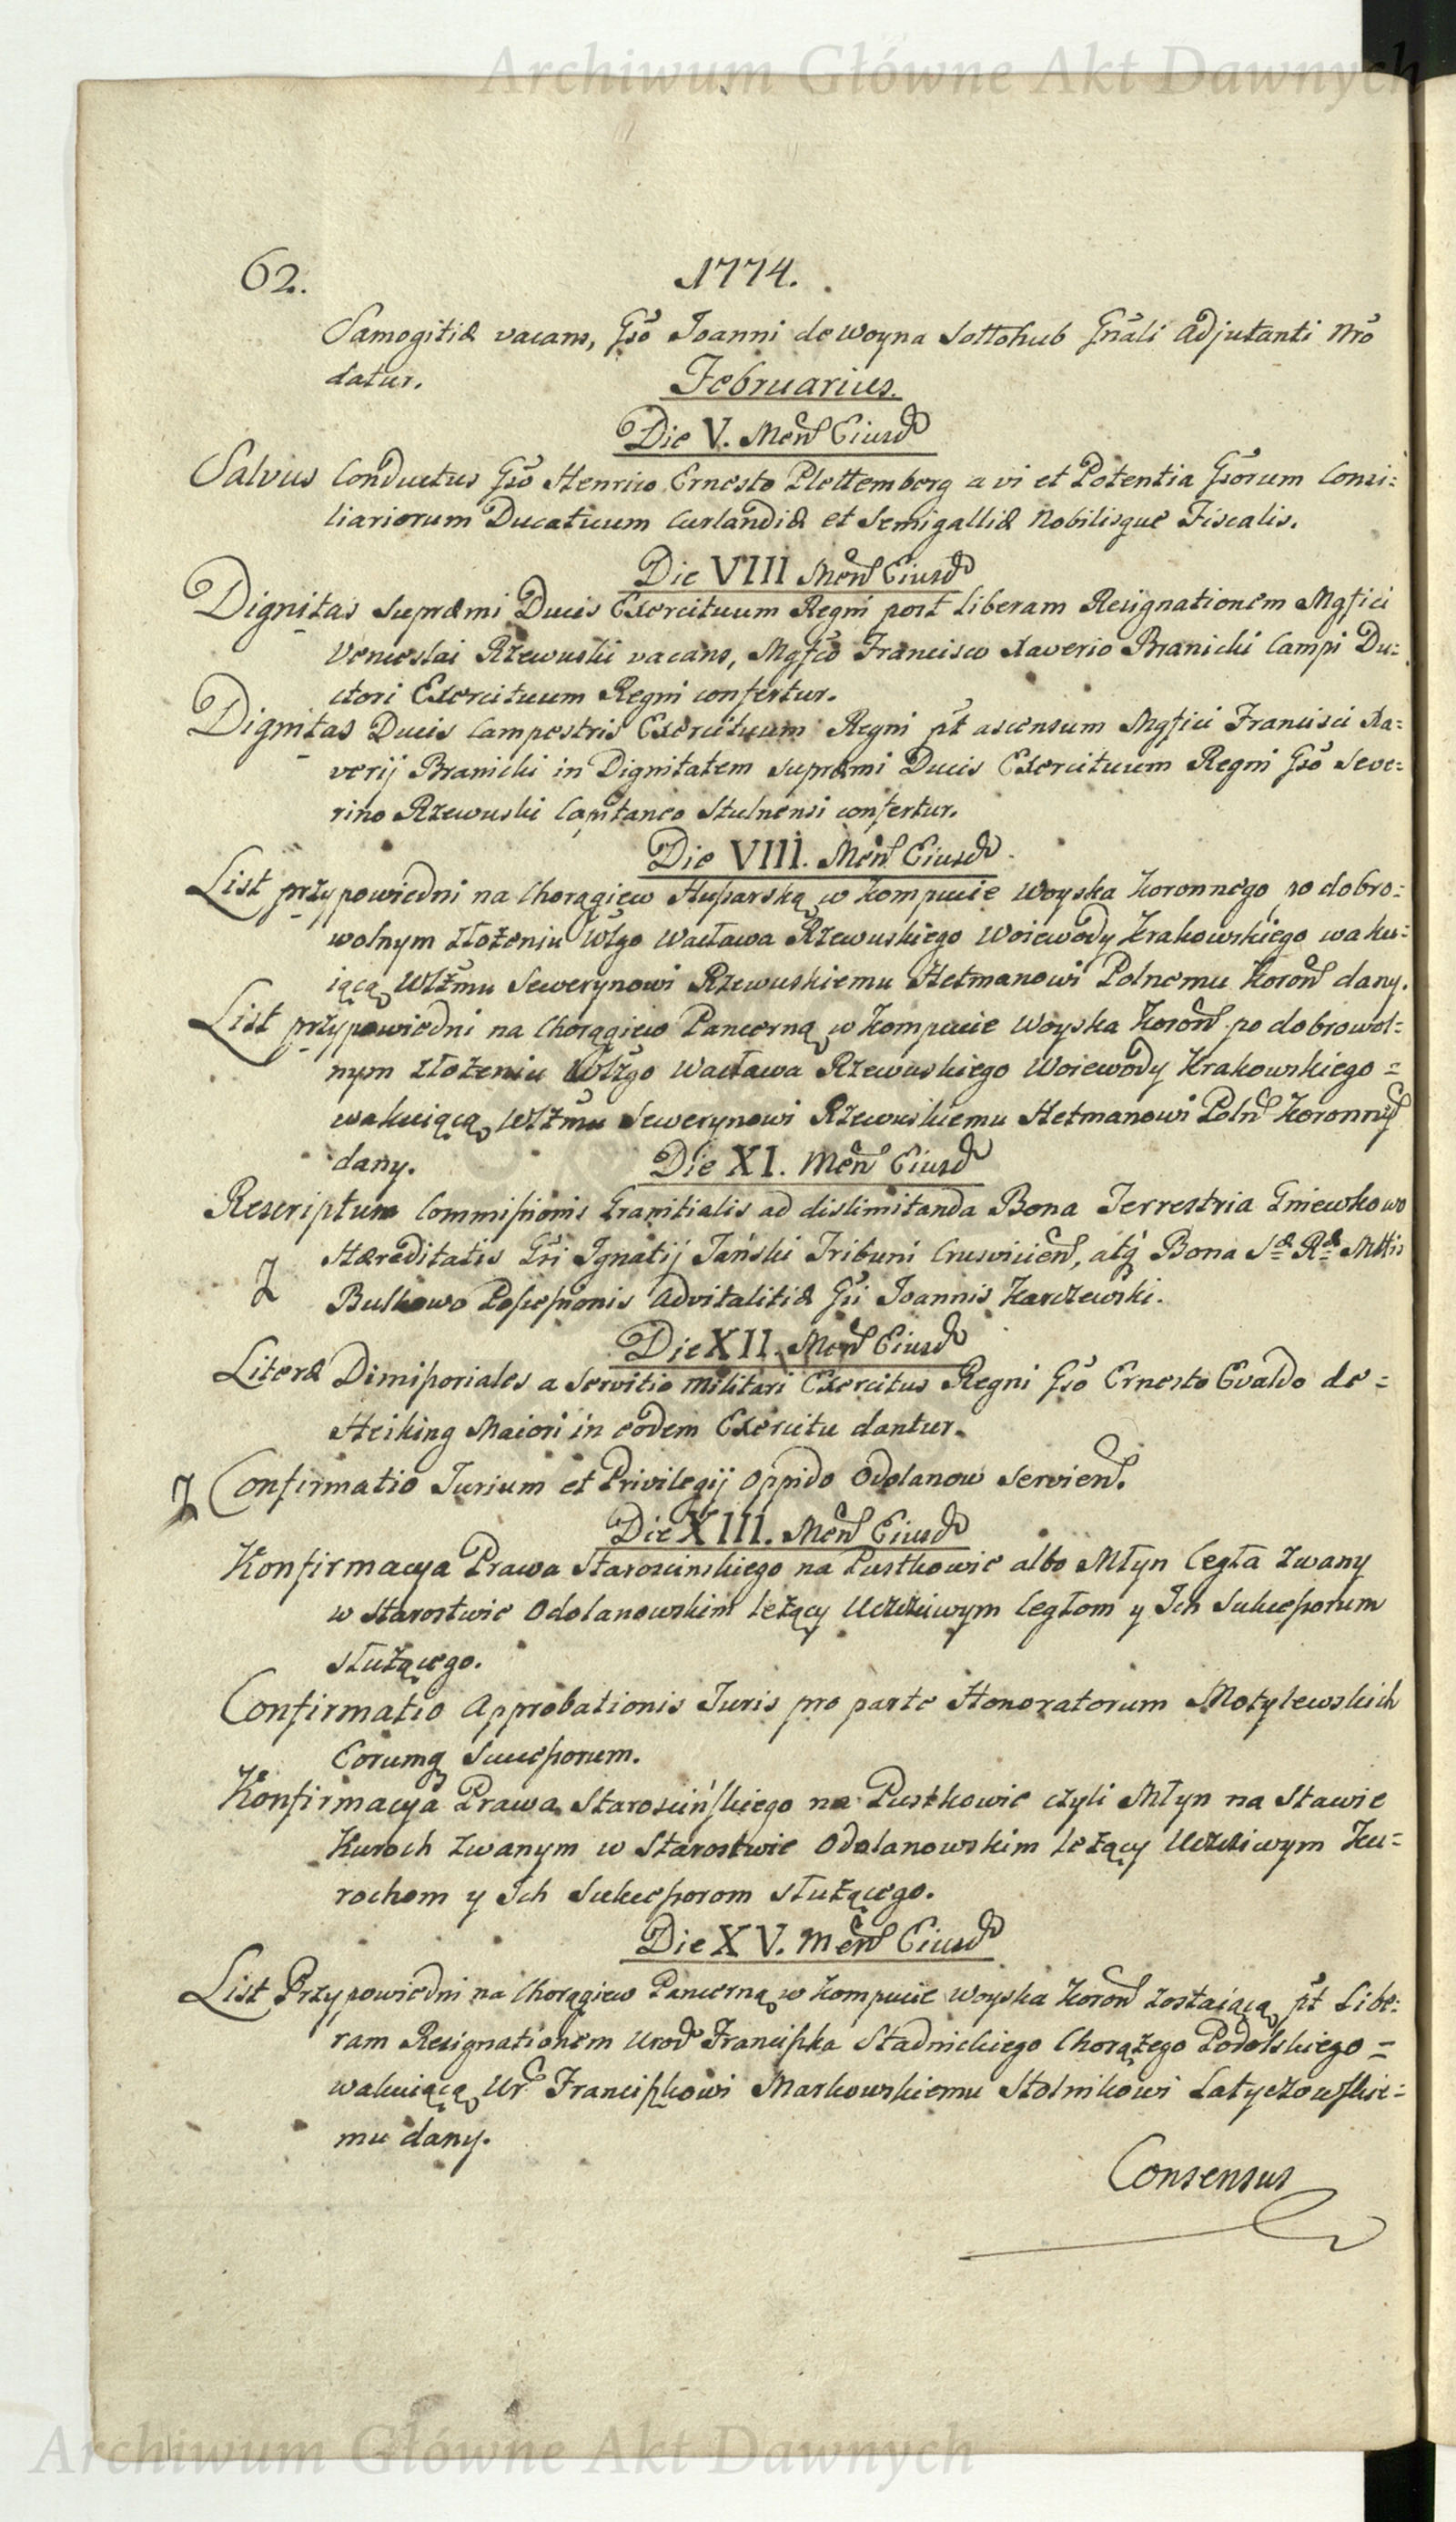 Archiwum Główne Akt Dawnych
62. 1774.
Samogitiæ vacans, Gso Joanni de Woyna Sottohub Gnali Adjutanti Nro
datur. Februarius.
Die V. Men Eiusd
Salvus Conductus Gso Henrico Ernesto Plettemberg a vi et Potentia Gsorum Consi:
liariorum Ducatuum Curlandiæ et Semigalliæ Nobilisque Fiscalis.
Die VIII Men Eiusd
Dignitas Supræmi Ducis Exercituum Regni post liberam Resignationem Mgfici
Venceslai Rzewuski vacans, Mgfco Francisco Xaverio Branicki Campi Du:
ctori Exercituum Regni confertur.
Dignitas Ducis Campestris Exercituum Regni pt ascensum Mgfici Francisci Xa:
verij Branicki in Dignitatem Supræmi Ducis Exercituum Regni Gso Seve:
rino Rzewuski Capitaneo Stulnensi confertur.
Die VIII. Men Eiusd
List przypowiedni na Chorągiew Husarską w Kompucie Woyska Koronnego po dobro:
wolnym złożeniu Wlgo Wacława Rzewuskiego Woiewody Krakowskiego waku:
iącą Wlżmu Sewerynowi Rzewuskiemu Hetmanowi Polnemu Koron dany.
List przypowiedni na Chorągiew Pancerną w Kompucie Woyska Koron po dobrowol:
nym złożeniu Wlżgo Wacława Rzewuskiego Woiewody Krakowskiego =
wakuiącą Wlżmu Sewerynowi Rzewuskiemu Hetmanowi Poln Koronny
dany. Die XI. Men Eiusd
Rescriptum Commissionis Granitialis ad dislimitanda Bona Terrestria Gniewkowo
Hæreditatis Gsi Ignatij Jański Tribuni Crusvicien, atq Bona Sæ Ræ Mttis
Bulkowo Possessionis Advitalitiæ Gsi Joannis Karczewski.
Die XII. Men Eiusd
Literæ Dimissoriales a Servitio Militari Exercitus Regni Gso Ernesto Evaldo de =
Heiking Maiori in eodem Exercitu dantur.
Confirmatio Jurium et Privilegij Oppido Odolanow Servien.
Die XIII. Men Eiusd
Konfirmacya Prawa Starościnskiego na Pustkowie albo Młyn Cegła zwany
w Starostwie Odolanowskim leżący Uczciwym Cegłom y Ich Sukcessorum
służącego.
Confirmatio Approbationis Juris pro parte Honoratorum Motylewskich
Eorumq Successorum.
Konfirmacya Prawa Starościńskiego na Pustkowie czyli Młyn na Stawie
Kuroch zwanym w Starostwie Odolanowskim leżący Uczciwym Ku=
rochom y Ich Sukcessorom służącego.
Die XV. Men Eiusd
List Przypowiedni na Chorągiew Pancerną w Kompucie Woyska Koron zostaiącą pt Libe:
ram Resignationem Urod Franciszka Stadnickiego Chorążego Podolskiego =
wakuiącą Ur Franciszkowi Markowskiemu Stolnikowi Latyczowskie=
mu dany.
Consensus
Archiwum Główne Akt Dawnych